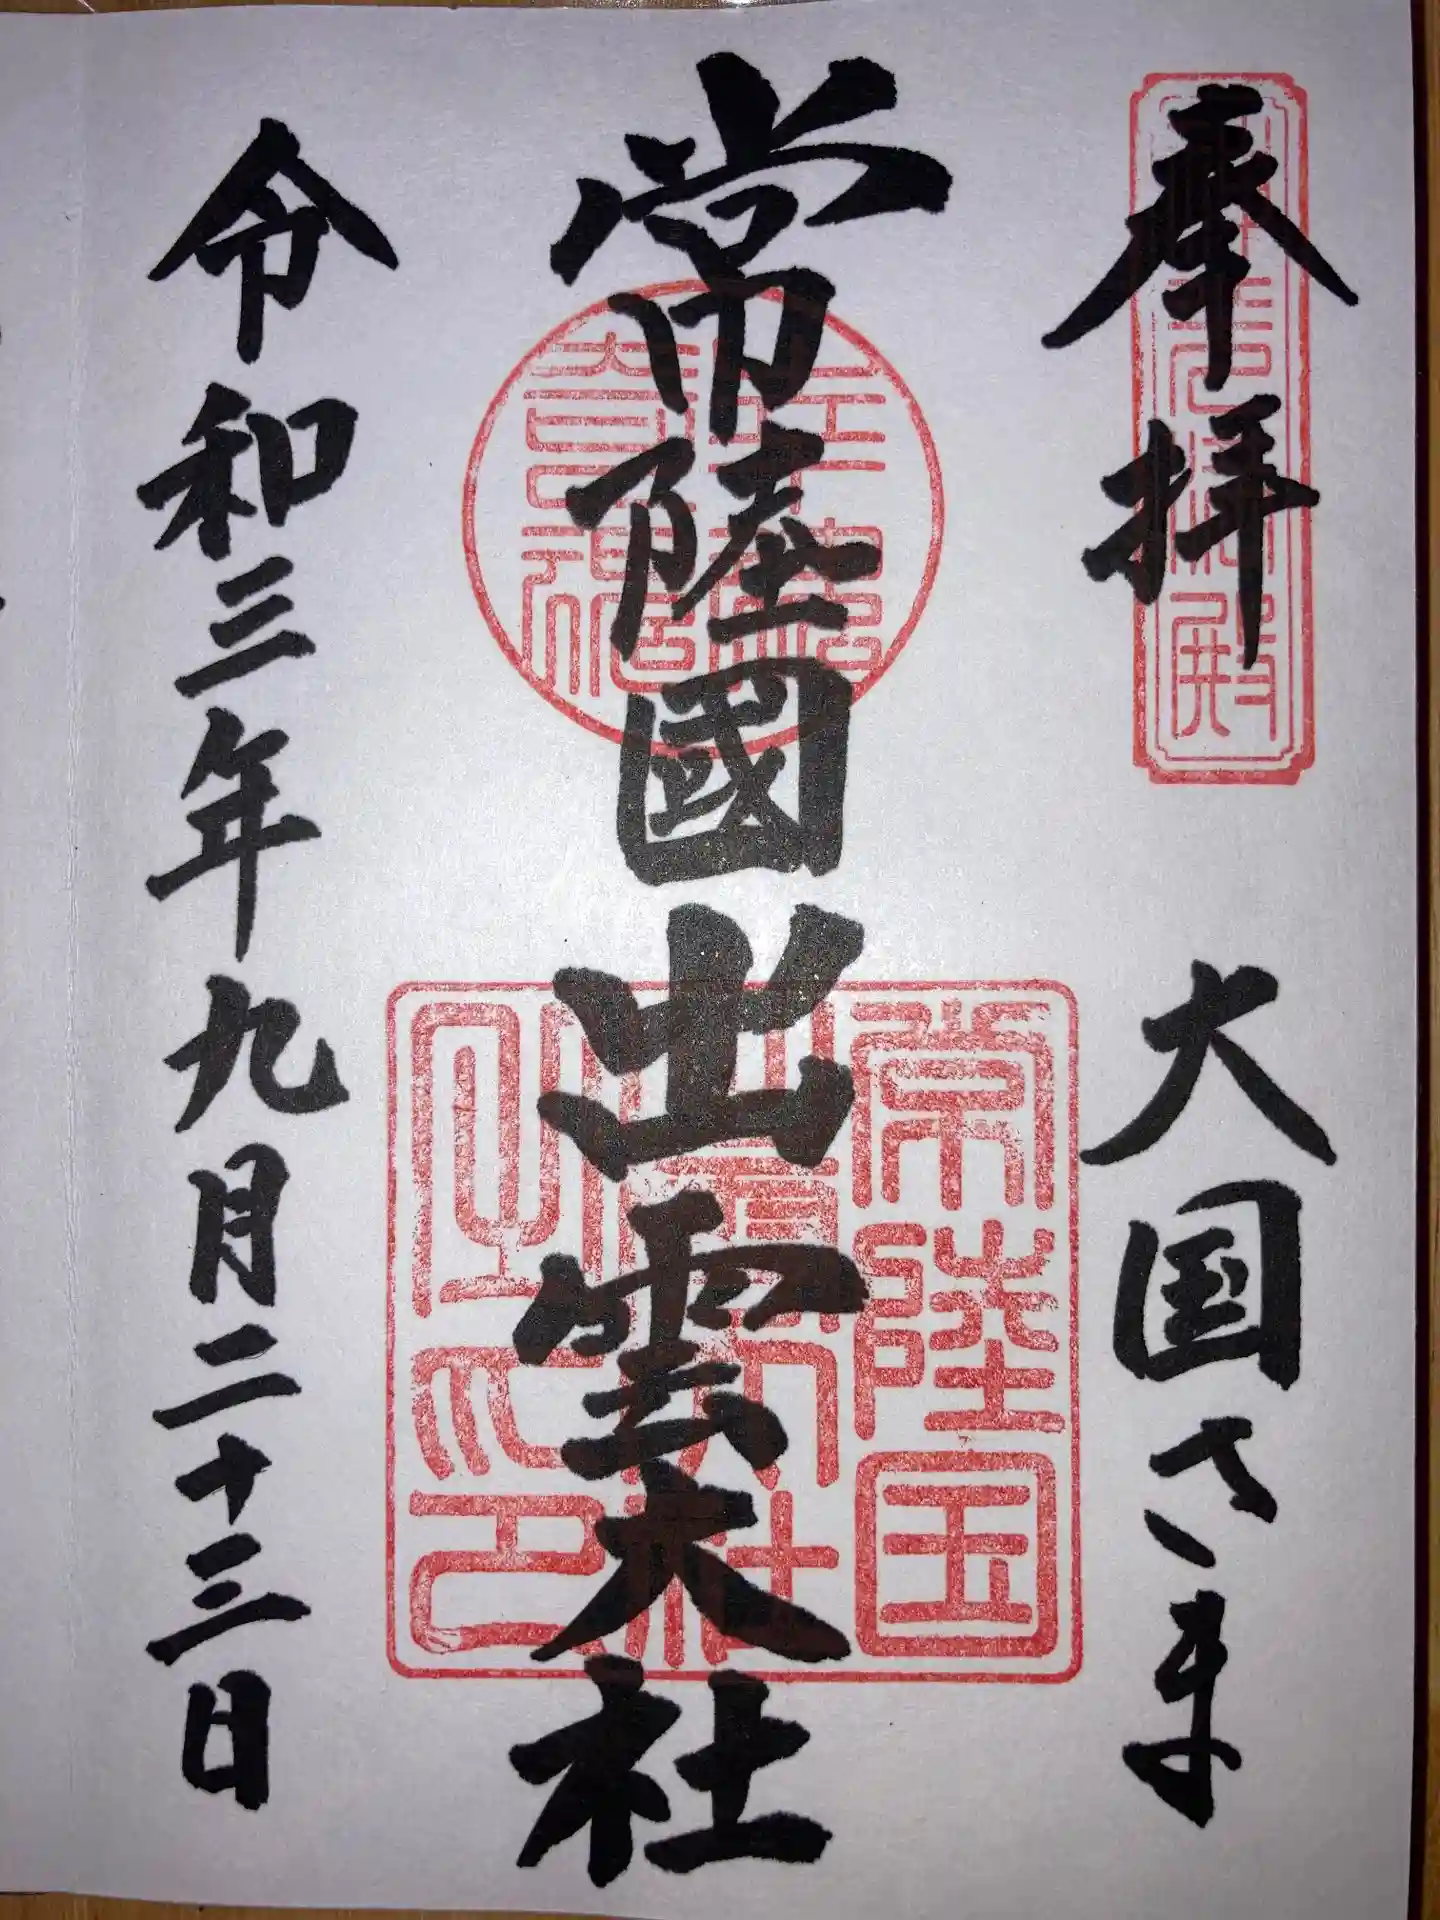 奉拝 大国さま
常陸國出雲大社
令和三年九月二十三日
常陸国